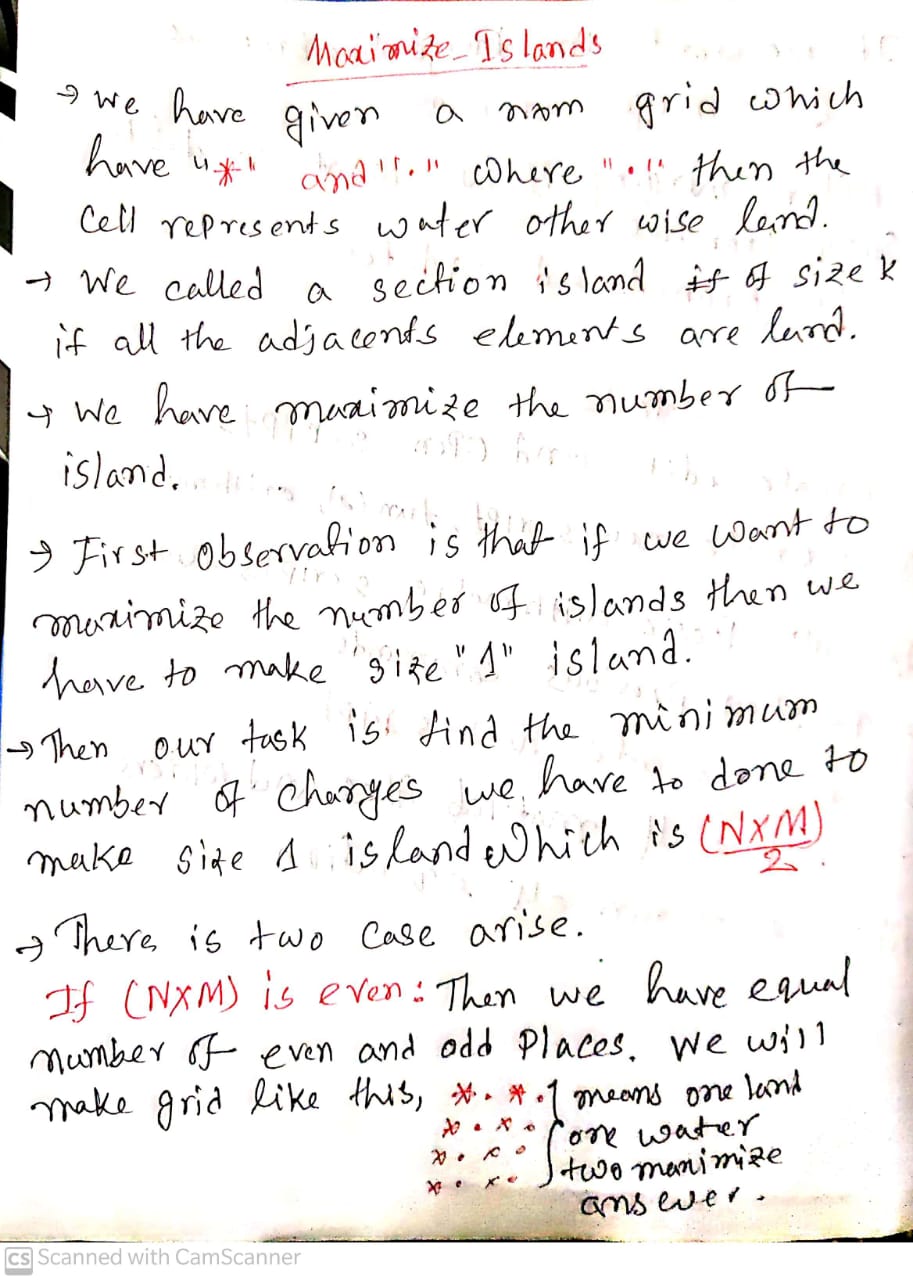 Maximize Islands
→ We have given a nxm grid which
have "*" and "." where "." then the
Cell represents water other wise land.
→ We called a section island if of size k
if all the adjacents elements are land.
→ We have maximize the number of
island.
→ First observation is that if we want to
maximize the number of islands then we
have to make size "1" island.
→ Then our task is find the minimum
number of changes we have to done to
make size 1 island which is (NXM)
2
→ There is two case arise.
If (NXM) is even: Then we have equal
number of even and odd Places. We will
make grid like this, * . * . } means one land
* . * . one water
* . * . two manimize
* . * . answer.
CS Scanned with CamScanner